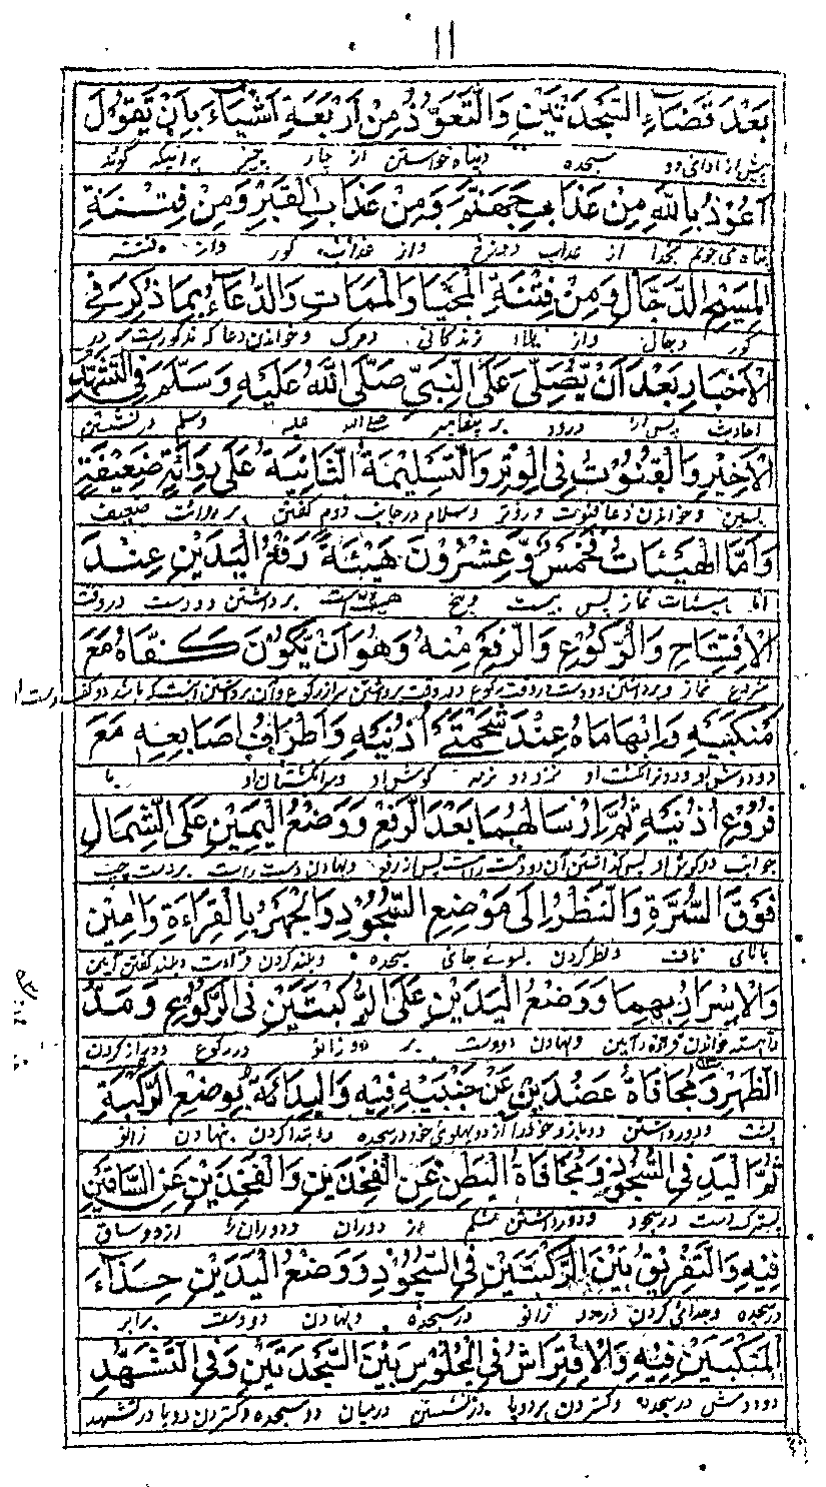 ١١
بَعْدَ قَضَاءِ السَّجْدَتَيْنِ وَالتَّعَوُّذُ مِنْ اَرْبَعَةِ اَشْيَاءَ بِاَنْ يَّقُوْلَ
پس از ادائی دو سجده و پناه خواستن از چار چیز به اینکه گوید
اَعُوْذُ بِاللّٰهِ مِنْ عَذَابِ جَهَنَّمَ وَمِنْ عَذَابِ الْقَبْرِ وَمِنْ فِتْنَةِ
پناه می جویم بخدا از عذاب دوزخ و از عذاب گور و از فتنه
الْمَسِيْحِ الدَّجَّالِ وَمِنْ فِتْنَةِ الْمَحْيَا وَالْمَمَاتِ وَالدُّعَاءُ بِمَا ذُكِرَ فِي
کور دجال و از بلاا زندگانی و مرگ و خواندن دعا که مذکورست در
الْاَخْبَارِ بَعْدَ اَنْ يُّصَلِّيَ عَلَى النَّبِيِّ صَلَّى اللّٰهُ عَلَيْهِ وَسَلَّمَ فِي التَّشَهُّدِ
احادیث پس از درود بر پیغامبر صلی الله علیه وسلم در نشستن
الْاَخِيْرِ وَالْقُنُوْتُ فِي الْوِتْرِ وَالتَّسْلِيْمَةُ الثَّانِيَةُ عَلٰى رِوَايَةٍ ضَعِيْفَةٍ
پسین و خواندن دعا قنوت در وتر و سلام در جانب دوم گفتن بر روایت ضعیف
وَاَمَّا الْهَيْئَاتُ فَخَمْسٌ وَّعِشْرُوْنَ هَيْئَةً رَفْعُ الْيَدَيْنِ عِنْدَ
اما هیئات نماز پس بیست و پنج هیئت است برداشتن دو دست در وقت
الْاِفْتِتَاحِ وَالرُّكُوْعِ وَالرَّفْعِ مِنْهُ وَهُوَ اَنْ يَّكُوْنَ كَفَّاهُ مَعَ
شروع نماز و برداشتن دو دست در وقت رکوع و در وقت برداشتن سر از رکوع و آن برداشتن اینست که باشد دو کف دست او
مَنْكِبَيْهِ وَاِبْهَامَاهُ عِنْدَ شَحْمَتَيْ اُذُنَيْهِ وَاَطْرَافُ اَصَابِعِهِ مَعَ
دو دوش او و دو نر انگشت او نزد دو نرمه گوش او و سر انگشتان او با
فُرُوْعِ اُذُنَيْهِ ثُمَّ اِرْسَالُهُمَا بَعْدَ الرَّفْعِ وَوَضْعُ الْيَمِيْنِ عَلَى الشِّمَالِ
جوانب دو گوش او پس گذاشتن آن دو دست راست پس از رفع و نهادن دست راست بر دست چپ
فَوْقَ السُّرَّةِ وَالنَّظَرُ اِلٰى مَوْضِعِ السُّجُوْدِ وَالْجَهْرُ بِالْقِرَاءَةِ وَاٰمِيْنَ
بالای ناف و نظر کردن بسوے جای سجده و بلند کردن قراءت و بلند گفتن آمین
وَالْاِسْرَارُ بِهِمَا وَوَضْعُ الْيَدَيْنِ عَلَى الرُّكْبَتَيْنِ فِي الرُّكُوْعِ وَمَدُّ
و آهسته خواندن قراءة و آمین و نهادن دو دست بر دو زانو در رکوع و دراز کردن
الظَّهْرِ وَمُجَافَاةُ عَضُدَيْنِ عَنْ جَنْبَيْهِ فِيْهِ وَالْبِدَائَةُ بِوَضْعِ الرُّكْبَةِ
پشت و دور داشتن دو بازو خود را از دو پهلوئ خود در سجده و ابتدا کردن بنهادن زانو
ثُمَّ الْيَدِ فِي السُّجُوْدِ وَمُجَافَاةُ الْبَطْنِ عَنِ الْفَخِذَيْنِ وَالْفَخِذَيْنِ عَنِ السَّاقَيْنِ
پستر دست در سجود و دور داشتن شکم از دو ران و دو ران را از دو ساق
فِيْهِ وَالتَّفْرِيْقُ بَيْنَ الرُّكْبَتَيْنِ فِي السُّجُوْدِ وَوَضْعُ الْيَدَيْنِ حِذَاءَ
در سجده و جدائی کردن در دو زانو در سجده و نهادن دو دست برابر
الْمَنْكِبَيْنِ فِيْهِ وَالْاِفْتِرَاشُ فِي الْجُلُوْسِ بَيْنَ السَّجْدَتَيْنِ وَفِي التَّشَهُّدِ
دو دوش در سجده و گستردن هر دو پا در نشستن درمیان دو سجده و گستردن دو پا در تشهد